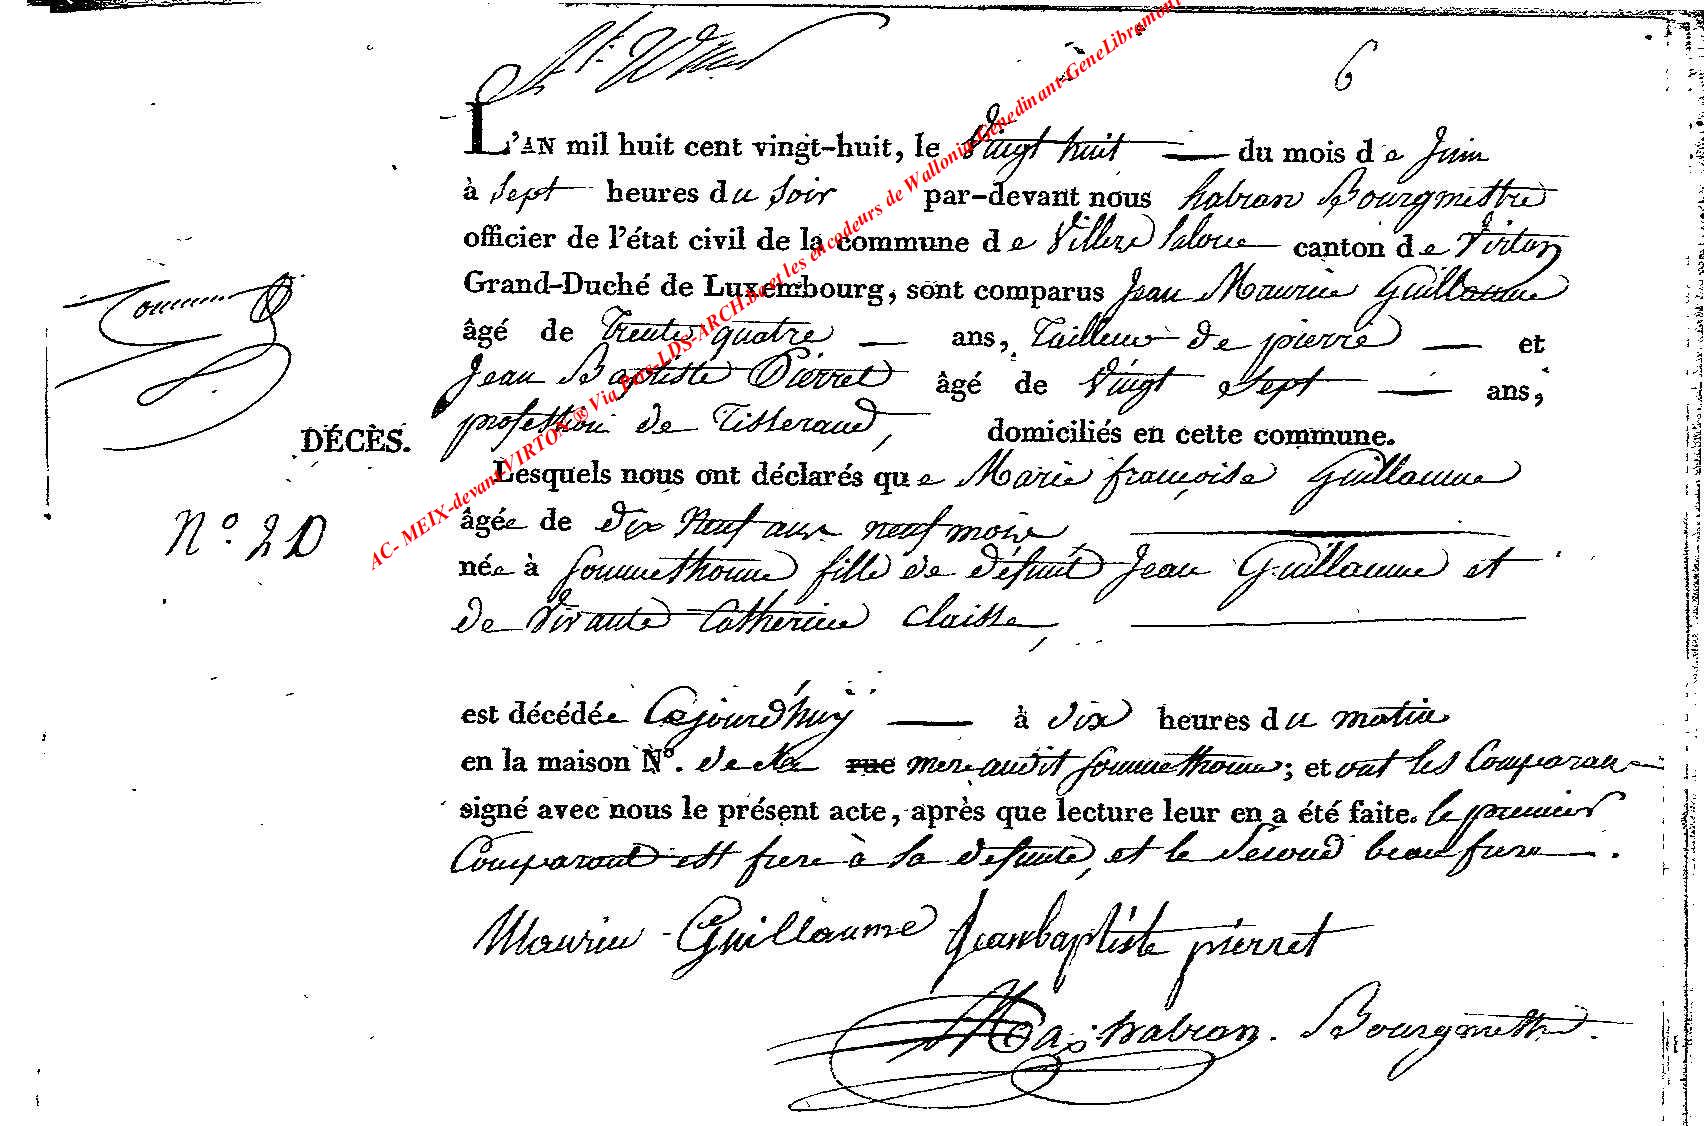 6
L'AN mil huit cent vingt-huit, le Vingt huit — du mois de Juin
à Sept heures du Soir par-devant nous habran Bourgmettre
officier de l'état civil de la commune de Villers laloue canton de Virton
Grand-Duché de Luxembourg, sont comparus Jean Maurice Guillaume
âgé de Trente quatre — ans, Tailleur de pierre — et
Jean Baptiste Pierret âgé de Vingt Sept — ans,
profession de Tisserand, domiciliés en cette commune.
DÉCÈS.
Lesquels nous ont déclarés que Marie françoise Guillaume
N.º 20
âgée de dix Neuf ans neuf mois,
née à Sommethonne fille de défunt Jean Guillaume et
de Vivante Catherine Claisse,
est décédée Cejourd'huÿ — à dix heures du matin
en la maison Nº. de la rue mere audit Sommethonne; et ont les Comparans
signé avec nous le présent acte, après que lecture leur en a été faite. le premier
Comparant est frere à la defunte, et le Second beau frere.
Maurice Guillaume Jeanbaptiste pierret
habran. Bourgmettre.
AC- MEIX-devant-VIRTON® Via Prix-LDS-ARCH.be et les encodeurs de Wallonia-Genedinant-GeneLibramont